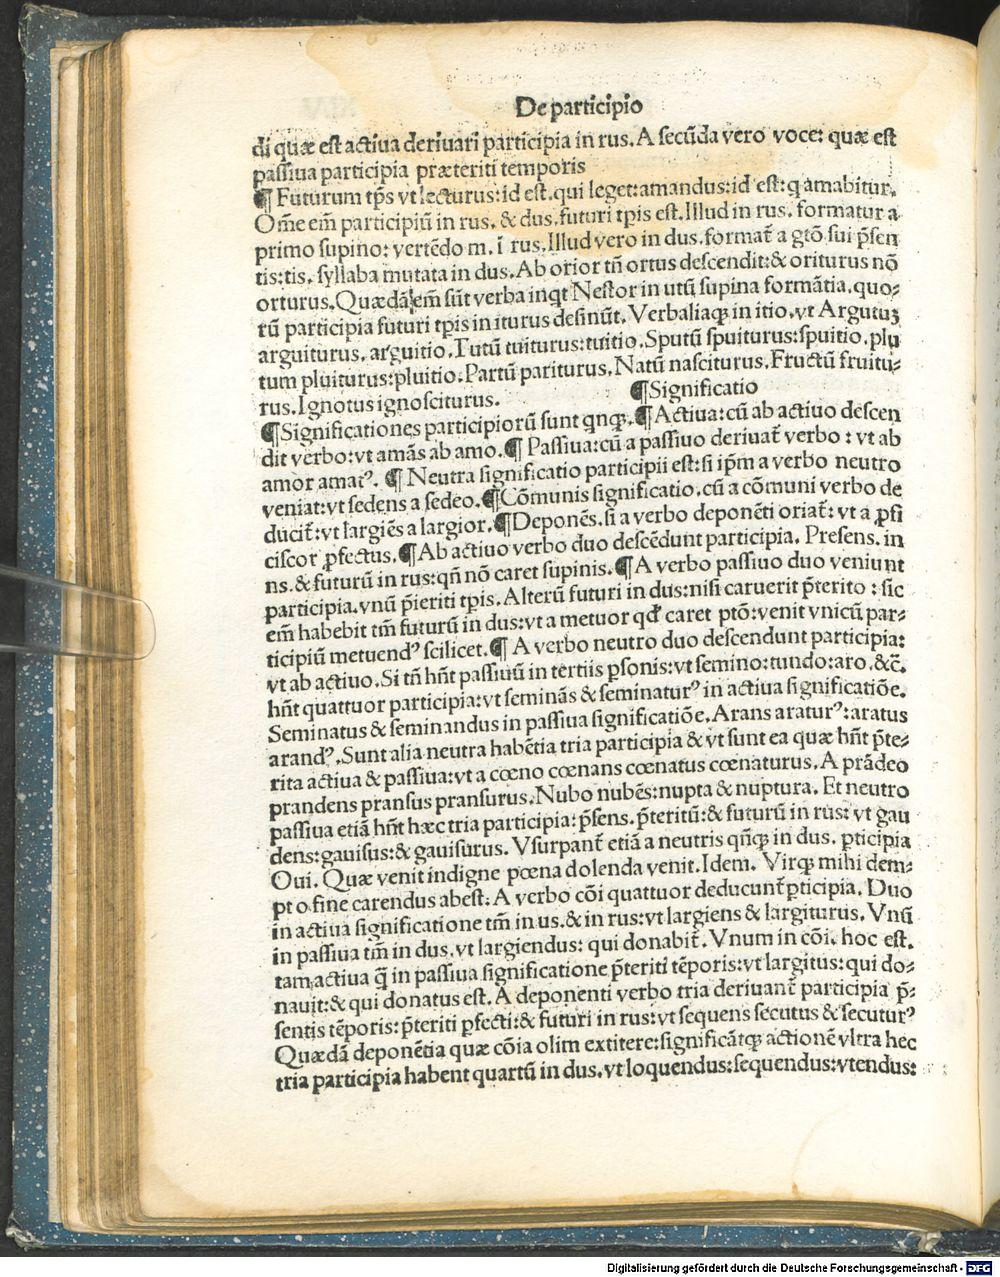 De participio
di quæ est actiua deriuari participia in rus. A secūda vero voce: quæ est
passiua participia præteriti temporis
¶ Futurum tp̄s vt lecturus: id est. qui leget: amandus: id est: q amabitur.
Om̄e em̄ participiū in rus. & dus. futuri tp̄is est. Illud in rus. formatur a
primo supino: vertēdo m. ī rus. Illud vero in dus. format᷑ a gtō sui p̄sen
tis: tis. syllaba mutata in dus. Ab orior tn̄ ortus descendit: & oriturus nō
orturus. Quædā em̄ sūt verba inqt Nestor in utū supina formātia. quo⸗
rū participia futuri tp̄is in iturus desinūt. Verbaliaqꝫ in itio. vt Argutuꝫ
arguiturus. arguitio. Tutū tuiturus: tuitio. Sputū spuiturus: spuitio. plu
tum pluiturus: pluitio. Partū pariturus. Natū nasciturus. Fructū fruitu⸗
rus. Ignotus ignosciturus. ¶Significatio
¶Significationes participiorū sunt qnqꝫ. ¶Actiua: cū ab actiuo descen
dit verbo: vt amās ab amo. ¶ Passiua: cū a passiuo deriuat᷑ verbo : vt ab
amor amatꝰ. ¶ Neutra significatio participii est: si ip̄m a verbo neutro
veniat: vt sedens a sedeo. ¶Cōmunis significatio. cū a cōmuni verbo de
ducit᷑: vt largiēs a largior. ¶Deponēs. si a verbo deponēti oriat᷑: vt a ꝓfi
ciscor ꝓfectus. ¶Ab actiuo verbo duo descēdunt participia. Presens. in
ns. & futurū in rus: qn̄ nō caret supinis. ¶A verbo passiuo duo veniunt
participia. vnū p̄teriti tp̄is. Alterū futuri in dus: nisi caruerit p̄terito : sic
em̄ habebit tm̄ futurū in dus: vt a metuor qd̓ caret ptō: venit vnicū par⸗
ticipiū metuendꝰ scilicet. ¶ A verbo neutro duo descendunt participia:
vt ab actiuo. Si tn̄ hn̄t passiuū in tertiis ꝑsonis: vt semino: tundo: aro. &c̄.
hn̄t quattuor participia: vt seminās & seminaturꝰ in actiua significatiōe.
Seminatus & seminandus in passiua significatiōe. Arans araturꝰ: aratus
arandꝰ. Sunt alia neutra habētia tria participia & vt sunt ea quæ hn̄t p̄te⸗
rita actiua & passiua: vt a cœno cœnans cœnatus cœnaturus. A prādeo
prandens pransus pransurus. Nubo nubēs: nupta & nuptura. Et neutro
passiua etiā hn̄t hæc tria participia: p̄sens. p̄teritū: & futurū in rus: vt gau
dens: gauisus: & gauisurus. Vsurpant᷑ etiā a neutris qn̄qꝫ in dus. ꝑticipia
Oui. Quæ venit indigne pœna dolenda venit. Idem. Virqꝫ mihi dem⸗
pto fine carendus abest. A verbo cōi quattuor deducunt᷑ ꝑticipia. Duo
in actiua significatione tm̄ in us. & in rus: vt largiens & largiturus. Vnū
in passiua tm̄ in dus. vt largiendus: qui donabit᷑. Vnum in cōi. hoc est.
tam actiua q̄ in passiua significatione p̄teriti tēporis: vt largitus: qui do⸗
nauit: & qui donatus est. A deponenti verbo tria deriuant᷑ participia p̄⸗
sentis tēporis: p̄teriti ꝑfecti: & futuri in rus: vt sequens secutus & secuturꝰ
Quædā deponētia quæ cōia olim extitere: significātqꝫ actionē vltra hec
tria participia habent quartū in dus. vt loquendus: sequendus: vtendus:
Digitalisierung gefördert durch die Deutsche Forschungsgemeinschaft - DFG